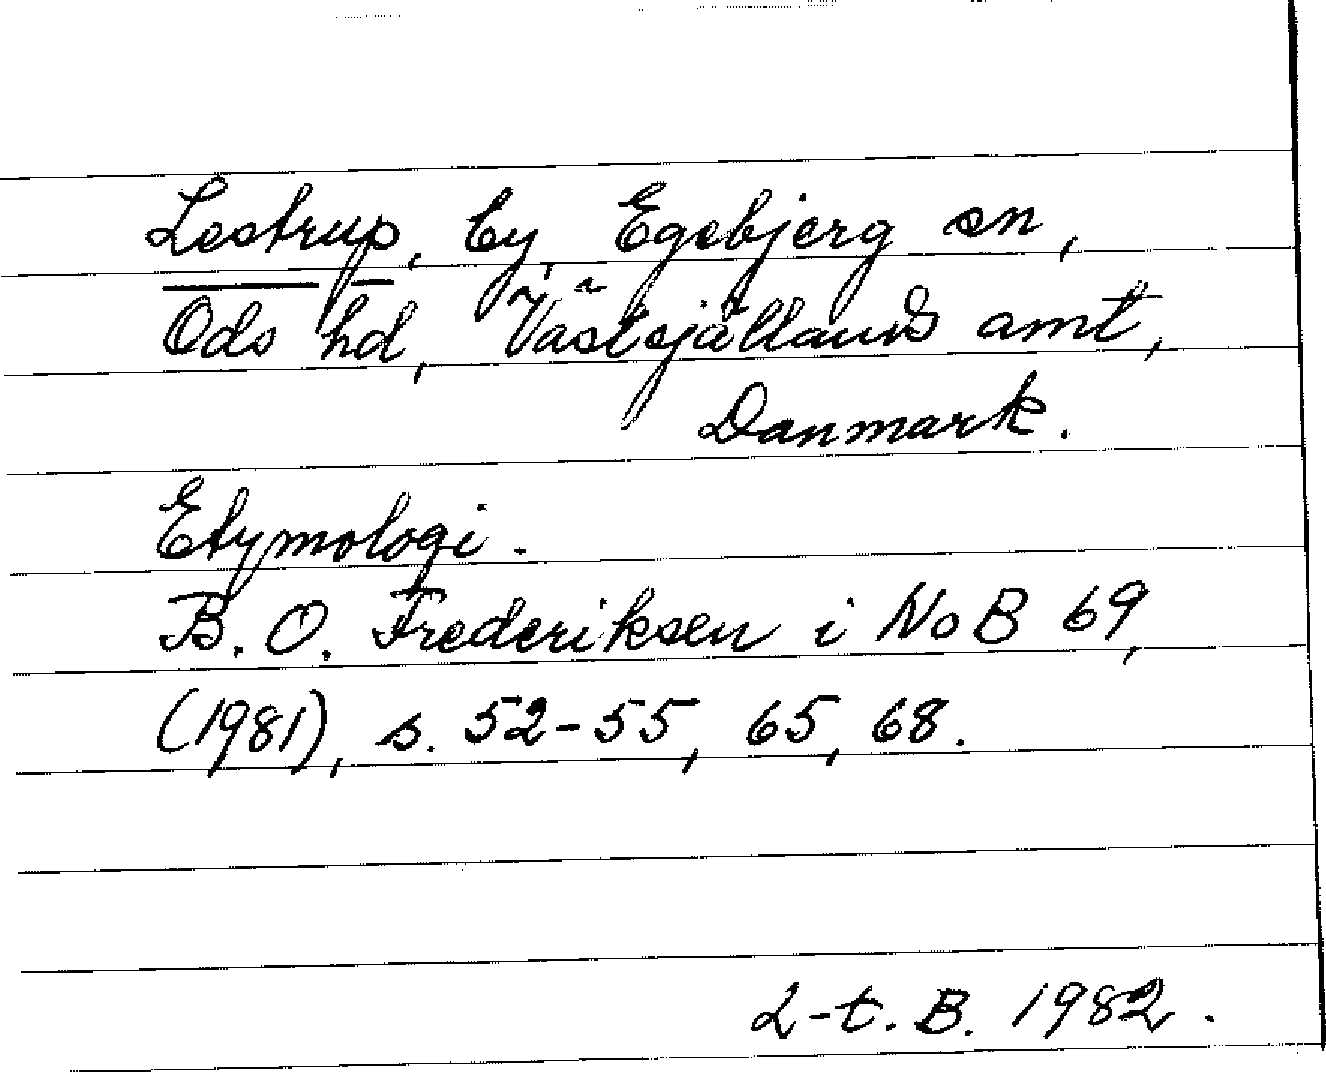 Lestrup, by, Egebjerg sn,
Ods hd, Västsjällands amt,
Danmark.
Etymologi.
B. O. Frederiksen i NoB 69,
(1981), s. 52-55, 65, 68.
L-t. B. 1982.